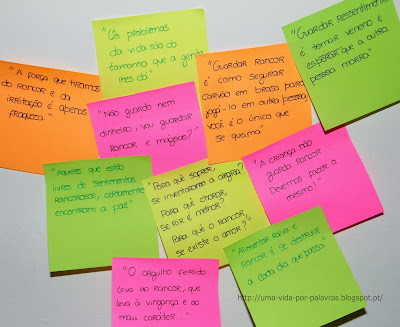 "Os problemas
da vida são do
tamanho que a gente
lhes dá"
"Guardar ressentimento
é tomar veneno e
esperar que a outra
pessoa morra"
"A força que tiramos
do rancor e da
irritação é apenas
fraqueza."
"Não guardo nem
dinheiro, vou guardar
rancor e mágoas?"
"Guardar rancor
é como segurar
carvão em brasa para
jogá-lo em outra pessoa,
você é o único que
se queima"
"Aqueles que estão
livres de sentimentos
rancorosos, certamente
encontram a paz"
"Para quê sofrer,
se inventaram a alegria?
Para quê chorar,
se rir é melhor?
Para quê o rancor,
se existe o amor?"
"A criança não
guarda rancor.
Devemos fazer o
mesmo!"
"Alimentar raiva e
rancor é se destruir
a cada dia que passa"
"O orgulho ferido
leva ao rancor, que
leva à vingança e ao
mau caráter..."
http://uma-vida-por-palavras.blogspot.pt/